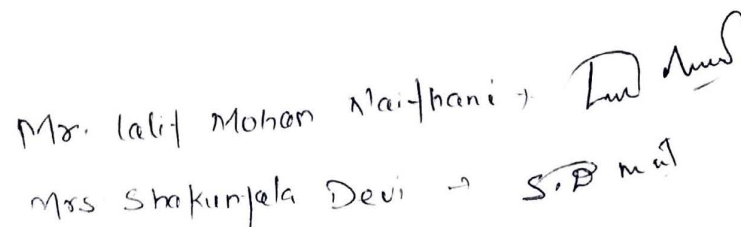 Mr. lalit Mohan Naithani →
Mrs Shakuntala Devi → S.D